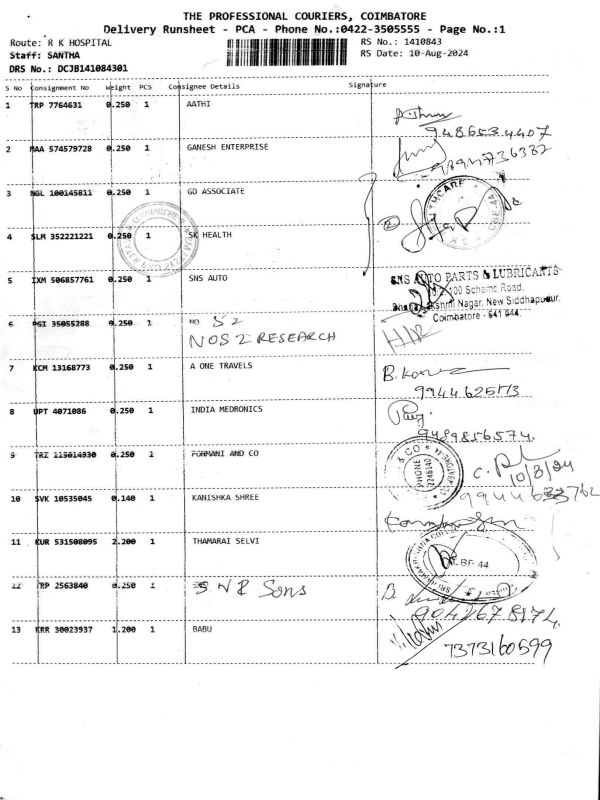 THE PROFESSIONAL COURIERS, COIMBATORE
Delivery Runsheet - PCA - Phone No.:0422-3505555 - Page No.:1
Route: R K HOSPITAL
RS No.: 1410843
Staff: SANTHA
RS Date: 10-Aug-2024
DRS No.: DCJB141084301
S No Consignment No Weight PCS Consignee Details Signature
1 TRP 7764631 0.250 1 AATHI
9486534407
2 MAA 574579728 0.250 1 GANESH ENTERPRISE
3 NGL 100145811 0.250 1 GD ASSOCIATE
4 SLM 352221221 0.250 1 SK HEALTH
5 IXM 506857761 0.250 1 SNS AUTO
SNS AUTO PARTS & LUBRICANTS
100 Scheme Road,
Nagar, New Siddhapudur,
Coimbatore - 641 044.
6 PGI 35055288 0.250 1 NO S2
NOS 2 RESEARCH
7 KCM 13168773 0.250 1 A ONE TRAVELS
8 UPT 4071086 0.250 1 INDIA MEDRONICS
9489856574.
9 TRZ 115014930 0.250 1 PONMANI AND CO
& CO
PHONE
2246140
10/8/24
10 SVK 10535045 0.140 1 KANISHKA SHREE
11 KUR 531508095 2.200 1 THAMARAI SELVI
12 TRP 2563840 0.250 1 S N R Sons
9042678174.
13 KRR 30023937 1.200 1 BABU
7373160599